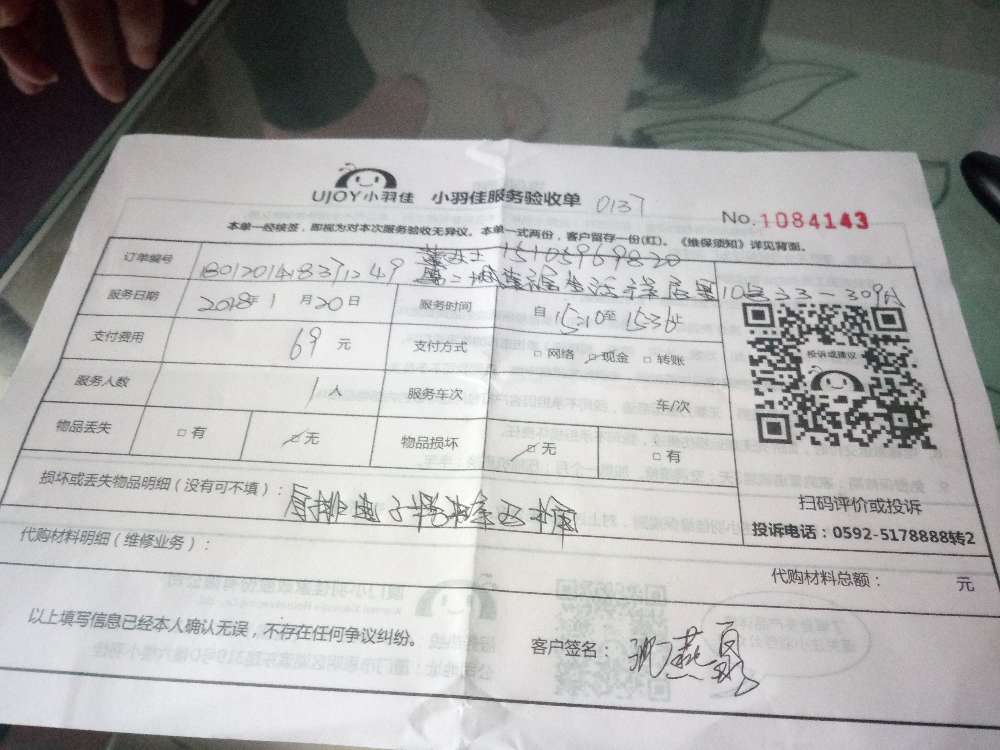 UJOY小羽佳 小羽佳服务验收单 0137
No.1084143
本单一经核签，即视为对本次服务验收无异议。本单一式两份，客户留存一份(红)。《维保须知》详见背面。
订单编号 女士 15105969820
服务日期 2018年1月20日 服务时间 自15:10至15:36止
支付费用 69元 支付方式 □网络 ☑现金 □转账
服务人数 1人 服务车次 车/次
物品丢失 □有 ☑无 物品损坏 ☑无 □有
投诉或建议
损坏或丢失物品明细（没有可不填）：
扫码评价或投诉
投诉电话：0592-5178888转2
代购材料明细（维修业务）：
代购材料总额： 元
以上填写信息已经本人确认无误，不存在任何争议纠纷。
客户签名：